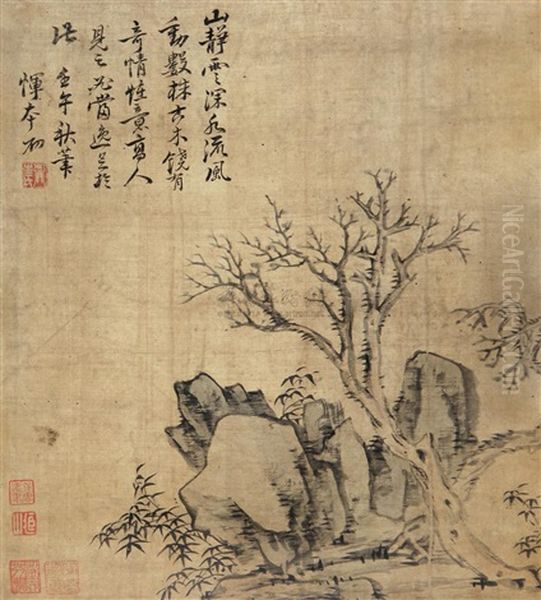 山靜雲深水流風
動數株古木饒有
奇情意高人
見之必當於
此 壬午秋筆
惲本初